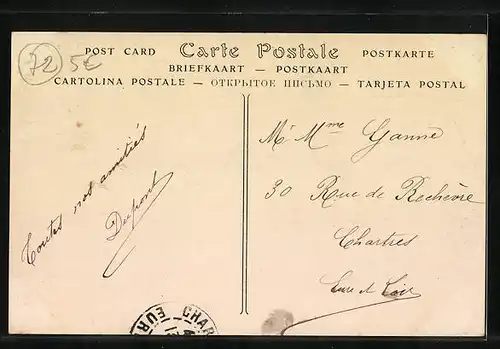 72 5€
POST CARD Carte Postale POSTKARTE
BRIEFKAART — POSTKAART
CARTOLINA POSTALE — ОТКРЫТОЕ ПИСЬМО — TARJETA POSTAL
Toutes nos amitiés
Dupont
Mr Mme Yanne
30 Rue de Rechèvre
Chartres
Eure et Loir
CHAR
EUR